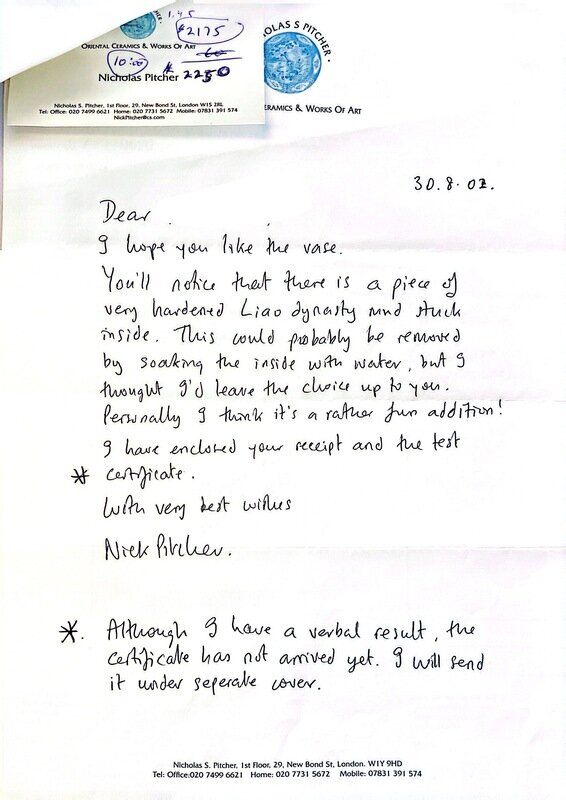 1.45
$2175
ORIENTAL CERAMICS & WORKS OF ART
10:00
Nicholas Pitcher
2250
Nicholas S. Pitcher, 1st Floor, 29, New Bond St, London W1S 2RL
Tel: Office: 020 7499 6621 Home: 020 7731 5672 Mobile: 07831 391 574
NickPitcher@cs.com
NICHOLAS S PITCHER
CERAMICS & WORKS OF ART
30.8.02.
Dear
I hope you like the vase.
You'll notice that there is a piece of
very hardened Liao dynasty mud stuck
inside. This could probably be removed
by soaking the inside with water, but I
thought I'd leave the choice up to you.
Personally I think it's a rather fun addition!
I have enclosed your receipt and the test
* certificate.
With very best wishes
Nick Pitcher.
*. Although I have a verbal result, the
certificate has not arrived yet. I will send
it under seperate cover.
Nicholas S. Pitcher, 1st Floor, 29, New Bond St, London. W1Y 9HD
Tel: Office:020 7499 6621 Home: 020 7731 5672 Mobile: 07831 391 574